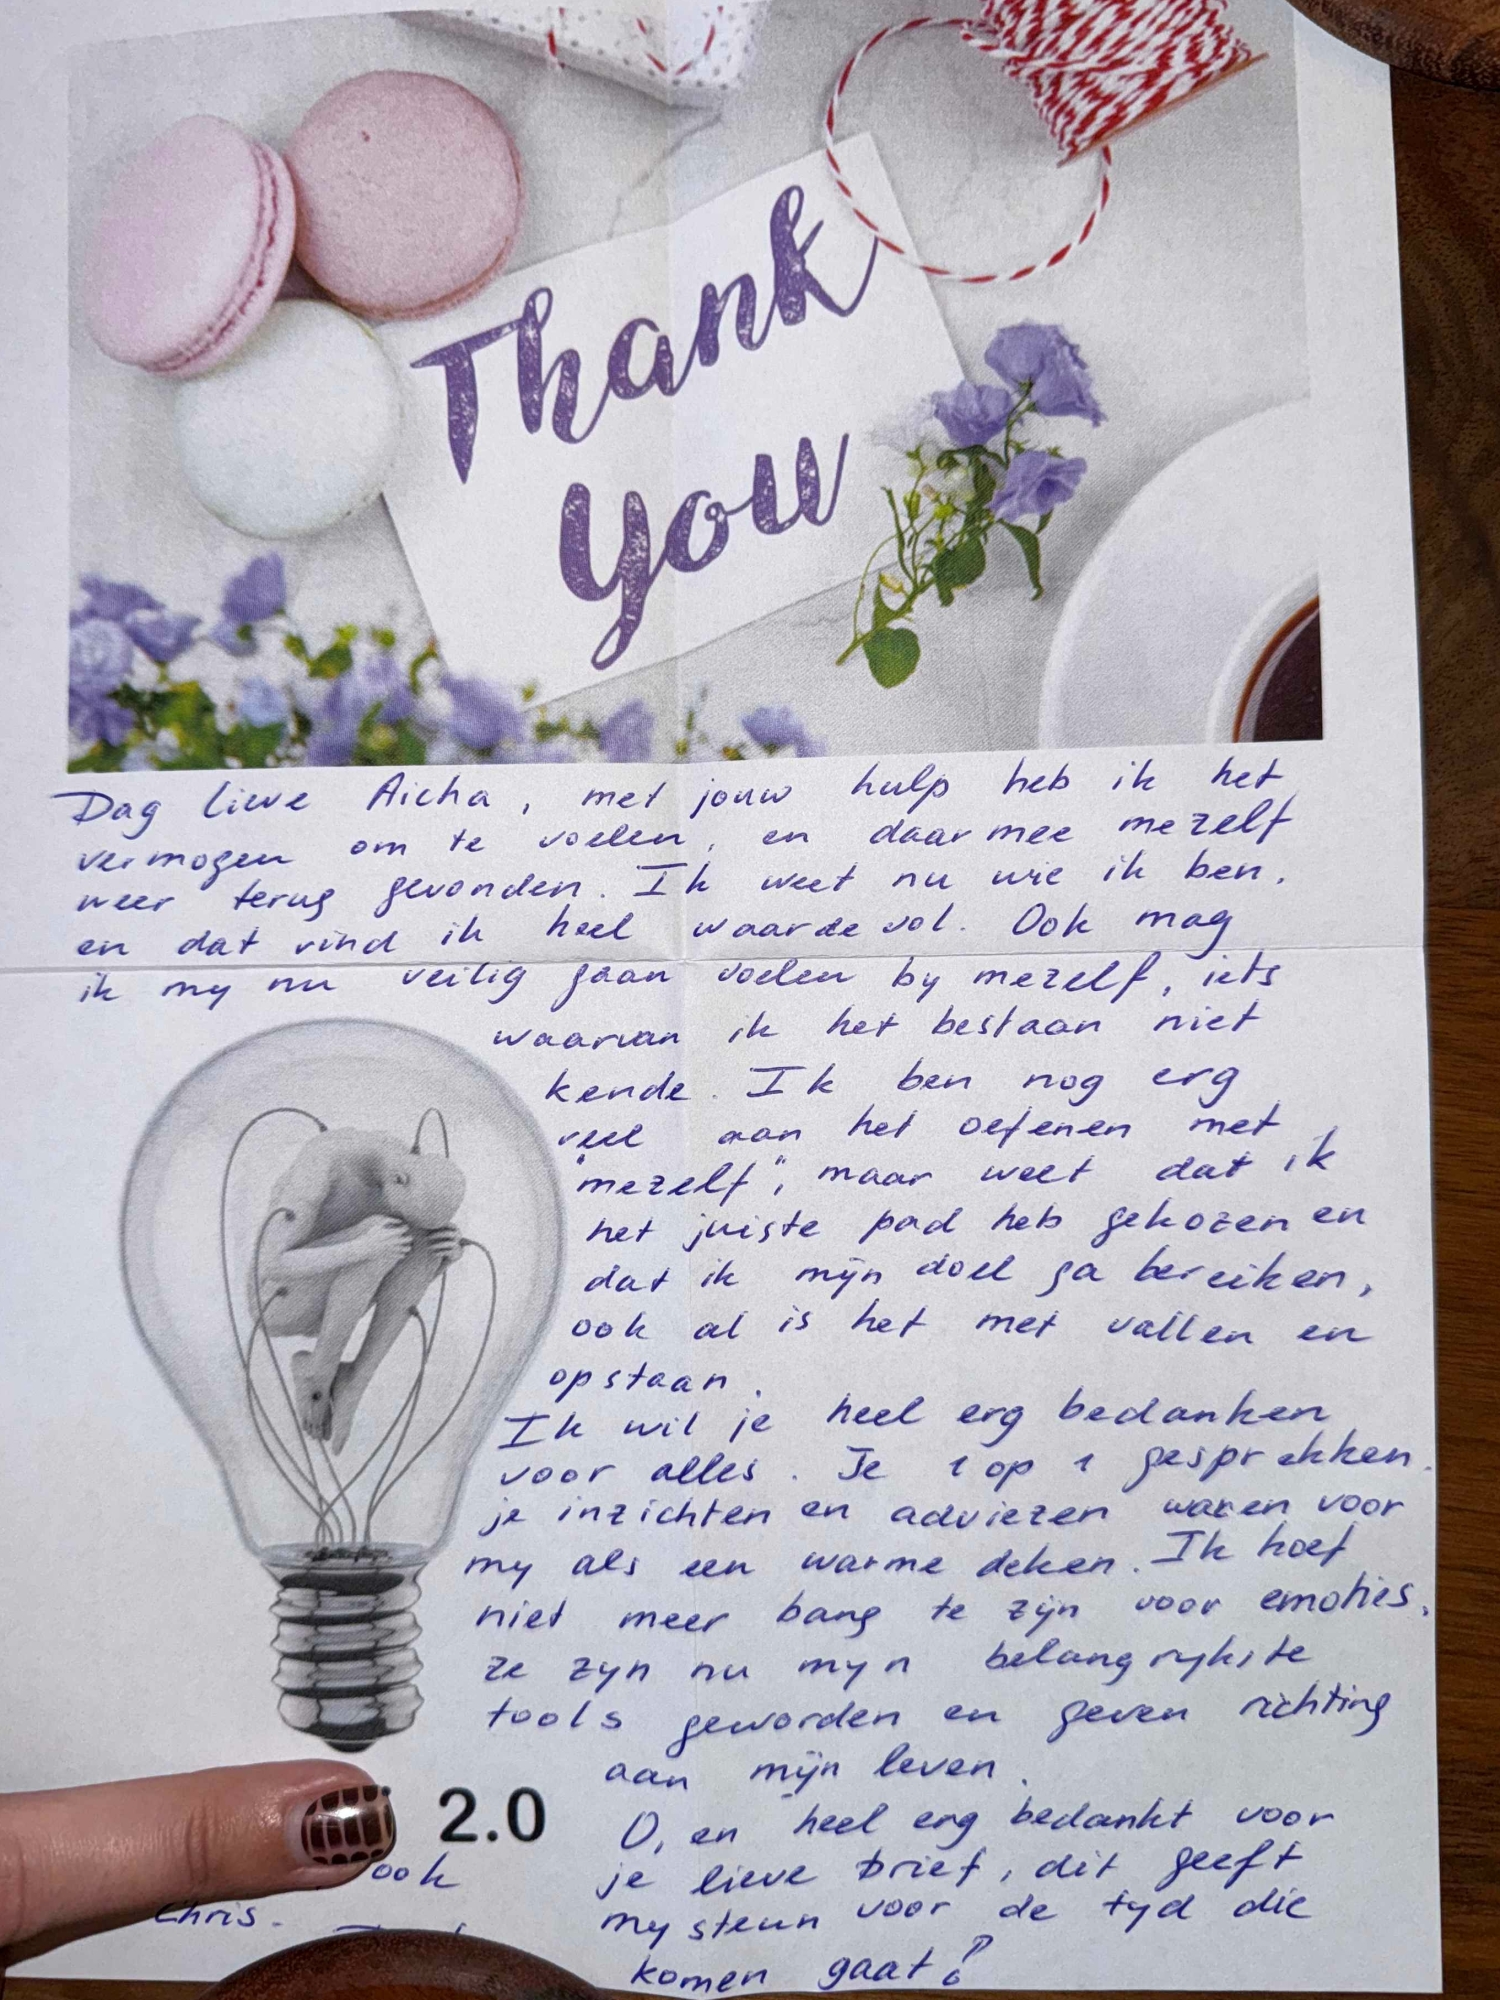 Thank
You
Dag lieve Aicha, met jouw hulp heb ik het
vermogen om te voelen, en daarmee mezelf
weer terug gevonden. Ik weet nu wie ik ben,
en dat vind ik heel waardevol. Ook mag
ik my nu veilig gaan voelen by mezelf, iets
waarvan ik het bestaan niet
kende. Ik ben nog erg
veel aan het oefenen met
"mezelf", maar weet dat ik
het juiste pad heb gekozen en
dat ik mijn doel ga bereiken,
ook al is het met vallen en
opstaan.
Ik wil je heel erg bedanken
voor alles. Je 1 op 1 gesprekken,
je inzichten en adviezen waren voor
my als een warme deken. Ik hoef
niet meer bang te zijn voor emoties,
ze zyn nu myn belangrykste
tools geworden en geven richting
aan mijn leven.
O, en heel erg bedankt voor
je lieve brief, dit geeft
my steun voor de tyd die
komen gaat!
2.0
ook
Chris.